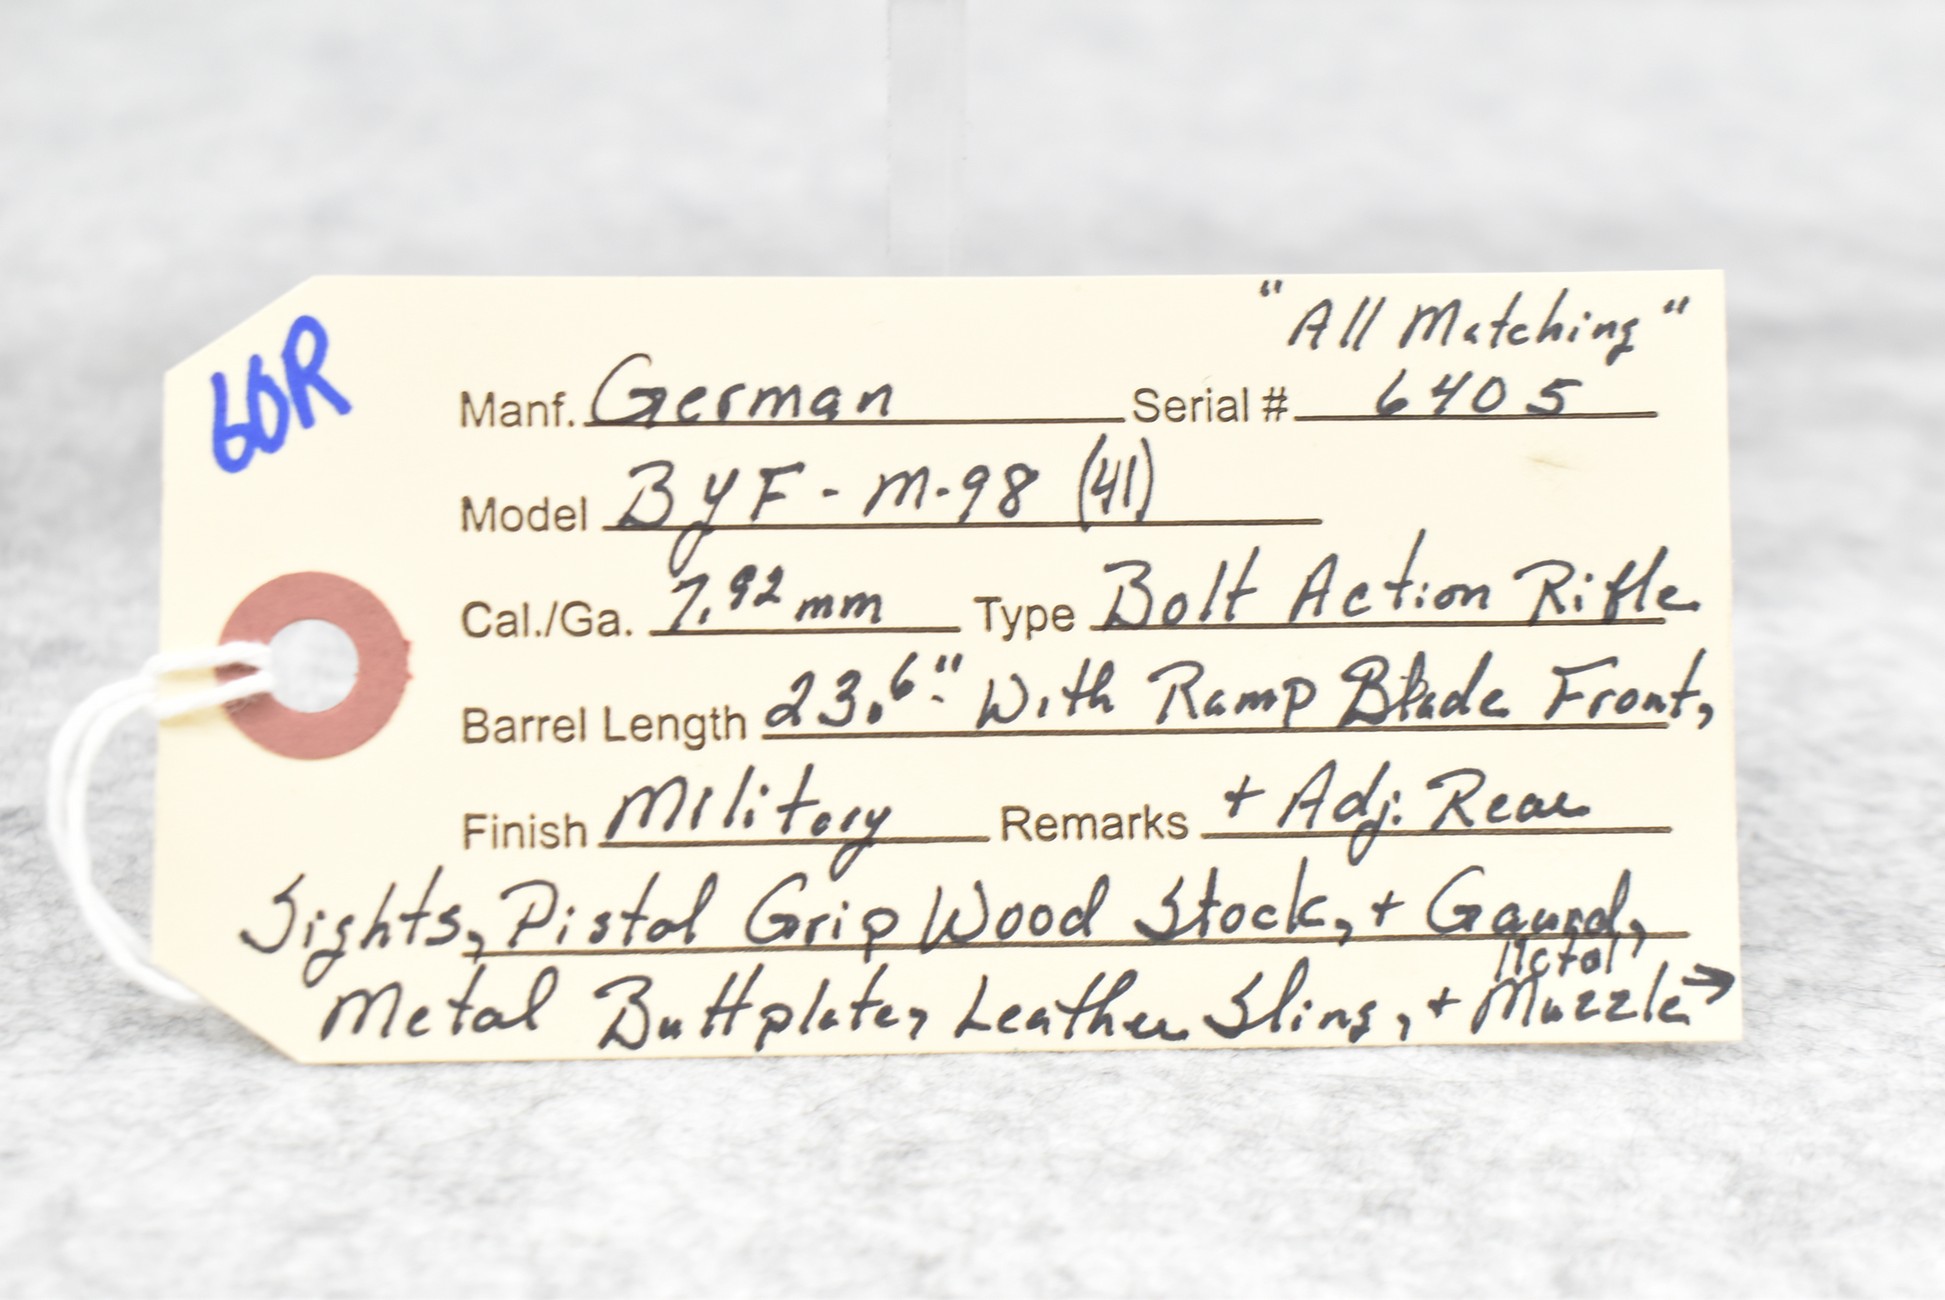 60R
"All Matching"
Manf. German Serial # 6405
Model ByF - M-98 (41)
Cal./Ga. 7.92 mm Type Bolt Action Rifle
Barrel Length 23.6" With Ramp Blade Front,
Finish Military Remarks + Adj. Rear
Sights, Pistol Grip Wood Stock, + Gaurd,
Metal
Metal Buttplate, Leather Sling, + Muzzle →